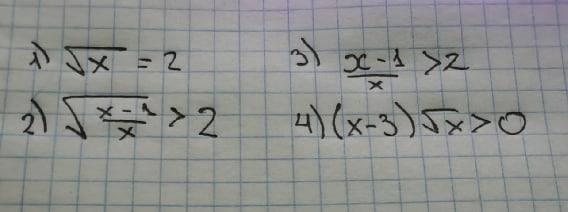 1) √x = 2
2) √((x-1)/x) > 2
3) (x-1)/x > 2
4) (x-3)√x > 0